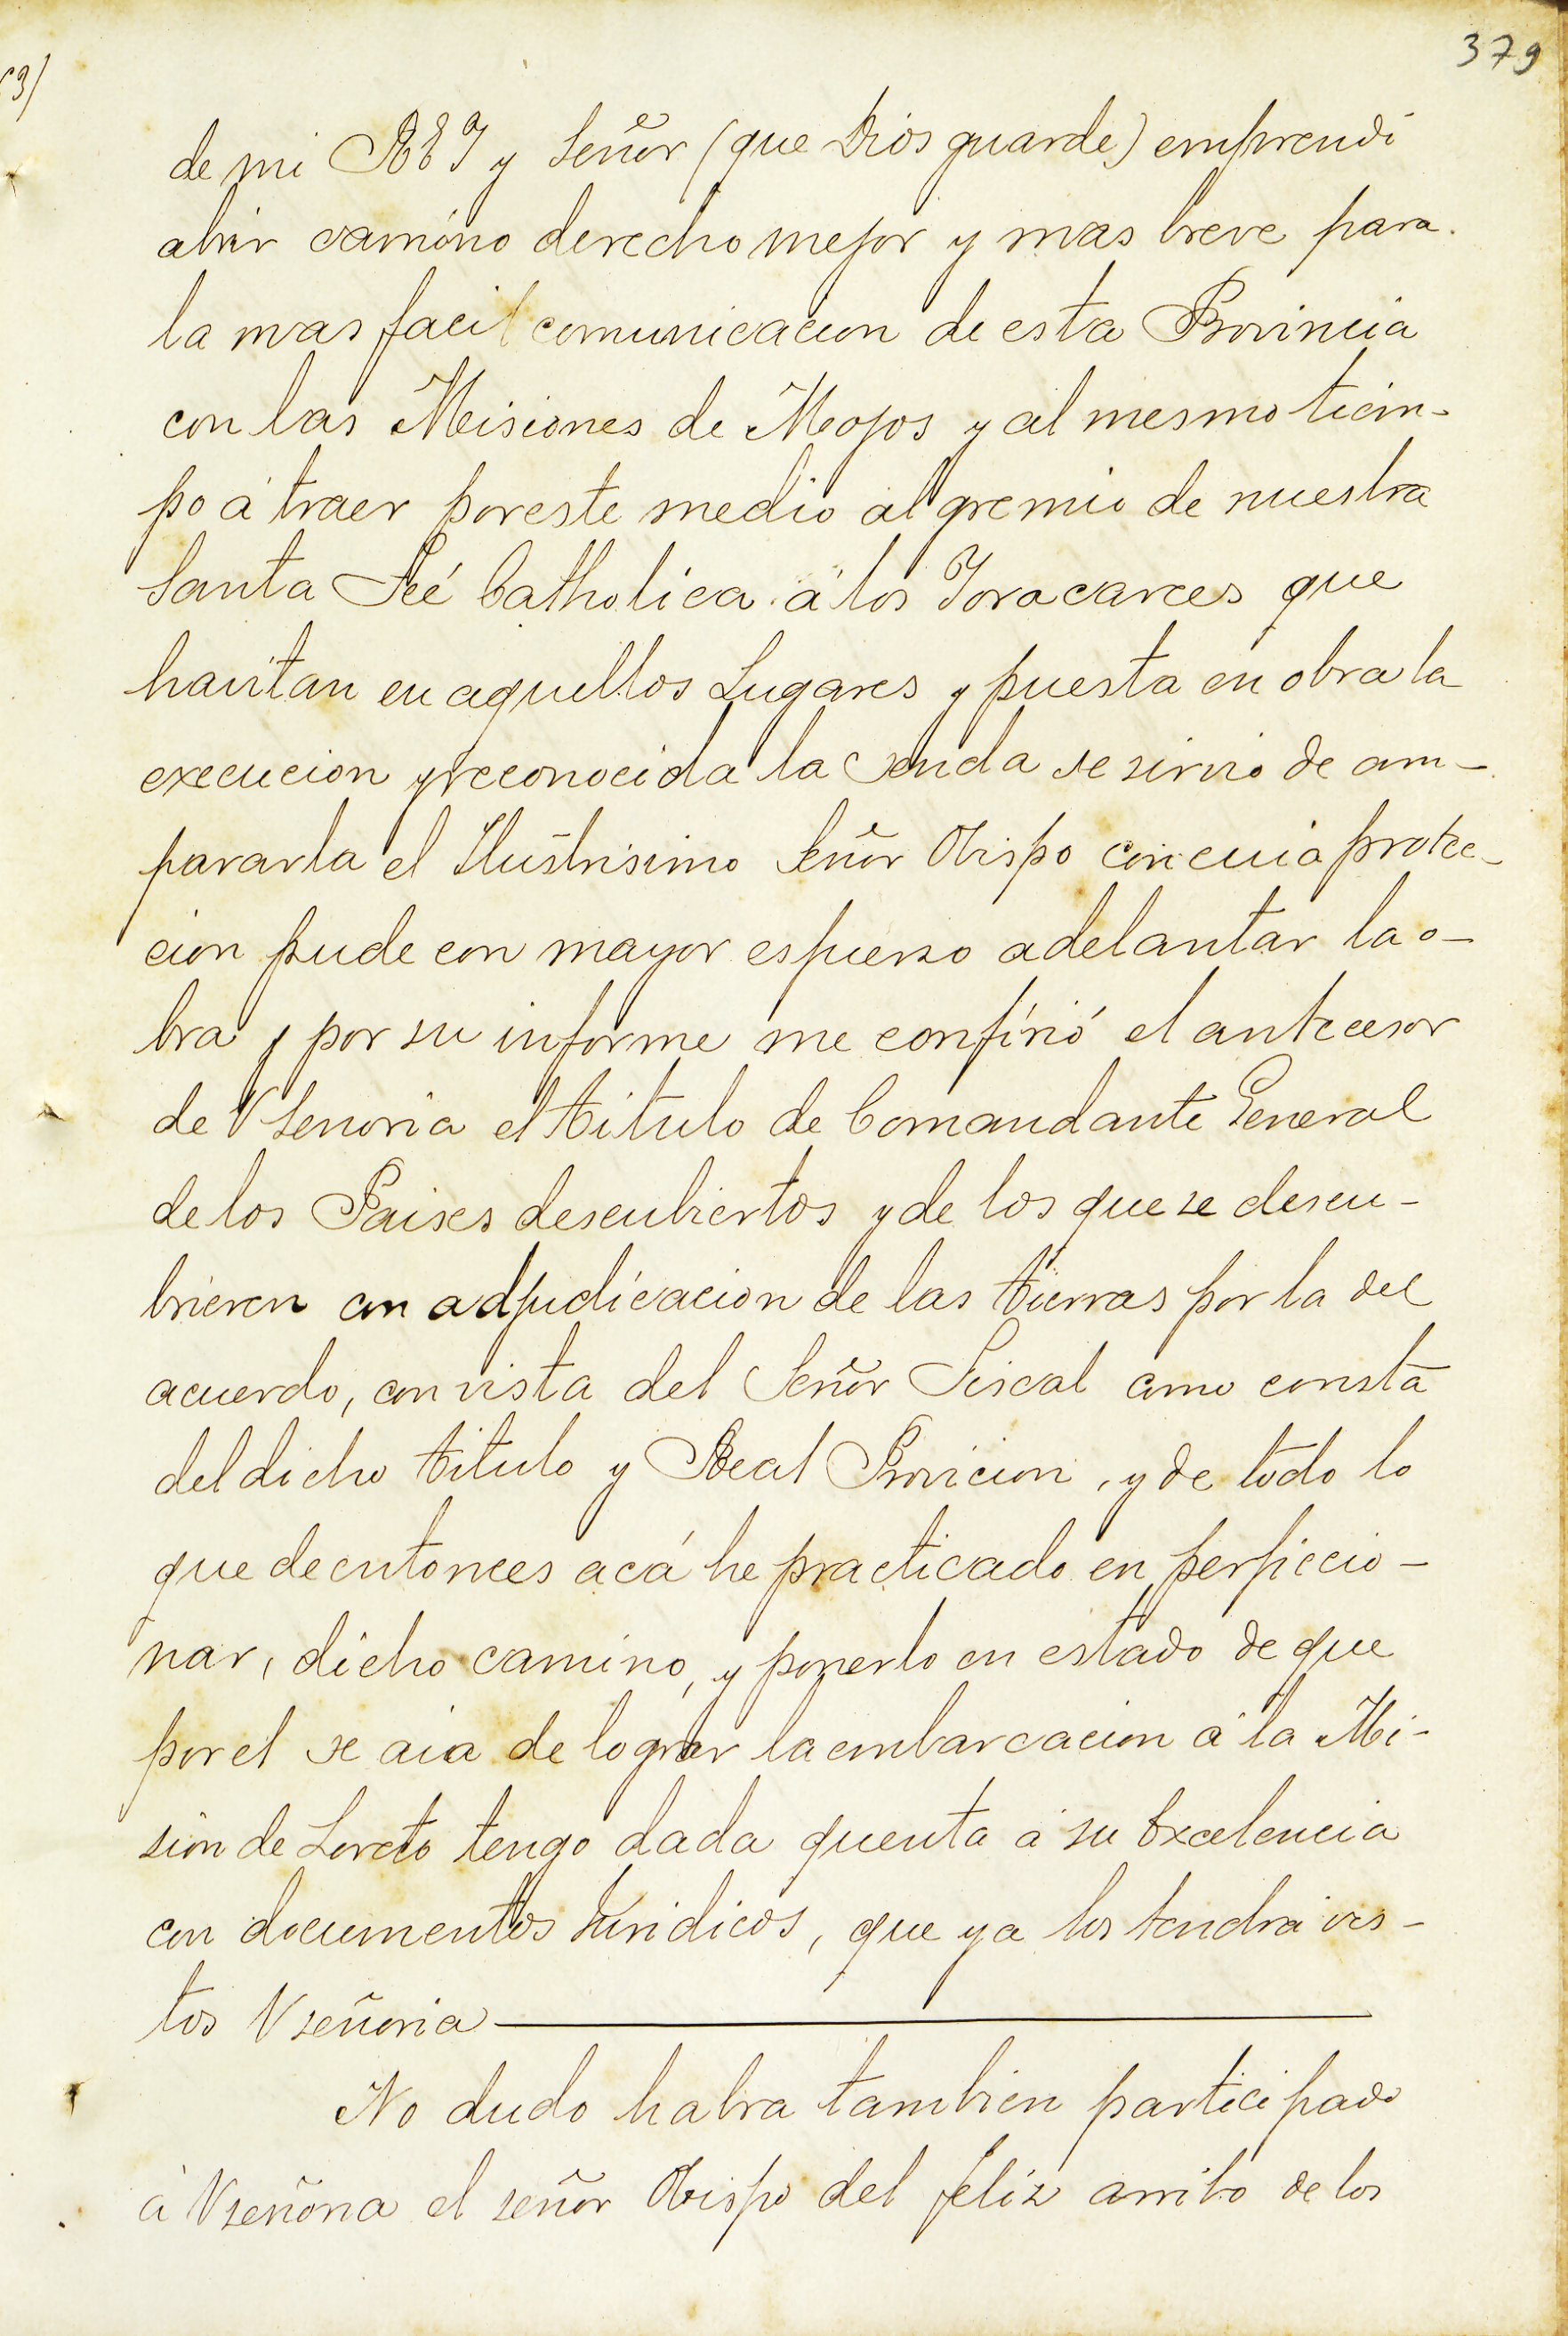 379
de mi REY y Señor (que Dios guarde) emprendi
abrir camino derecho mejor y mas breve para
la mas facil comunicacion de esta Provincia
con las Misiones de Mojos y al mesmo tiem-
po á traer por este medio al gremio de nuestra
Santa Feé Catholica á los Yoracarees que
havitan en aquellos Lugares y puesta en obra la
execucion y reconocida la senda se sirvio de am-
pararla el Ilustrisimo Señor Obispo con cuia protec-
cion pude con mayor esfuerzo adelantar la o-
bra y por su informe me confirió el antecesor
de VSenoria el titulo de Comandante General
de los Paises descubiertos y de los que se descu-
brieren con adjudicacion de las tierras por la del
acuerdo, con vista del Señor Fiscal como consta
del dicho titulo y Real Provicion, y de todo lo
que de entonces acá he practicado en perficcio-
nar, dicho camino, y ponerlo en estado de que
por el se aia de lograr la embarcacion á la Mi-
sion de Loreto tengo dada quenta á su Excelencia
con documentos Juridicos, que ya los tendra vis-
tos Vseñoria
No dudo habra tambien participado
á Vseñoria el señor Obispo del feliz arribo de los